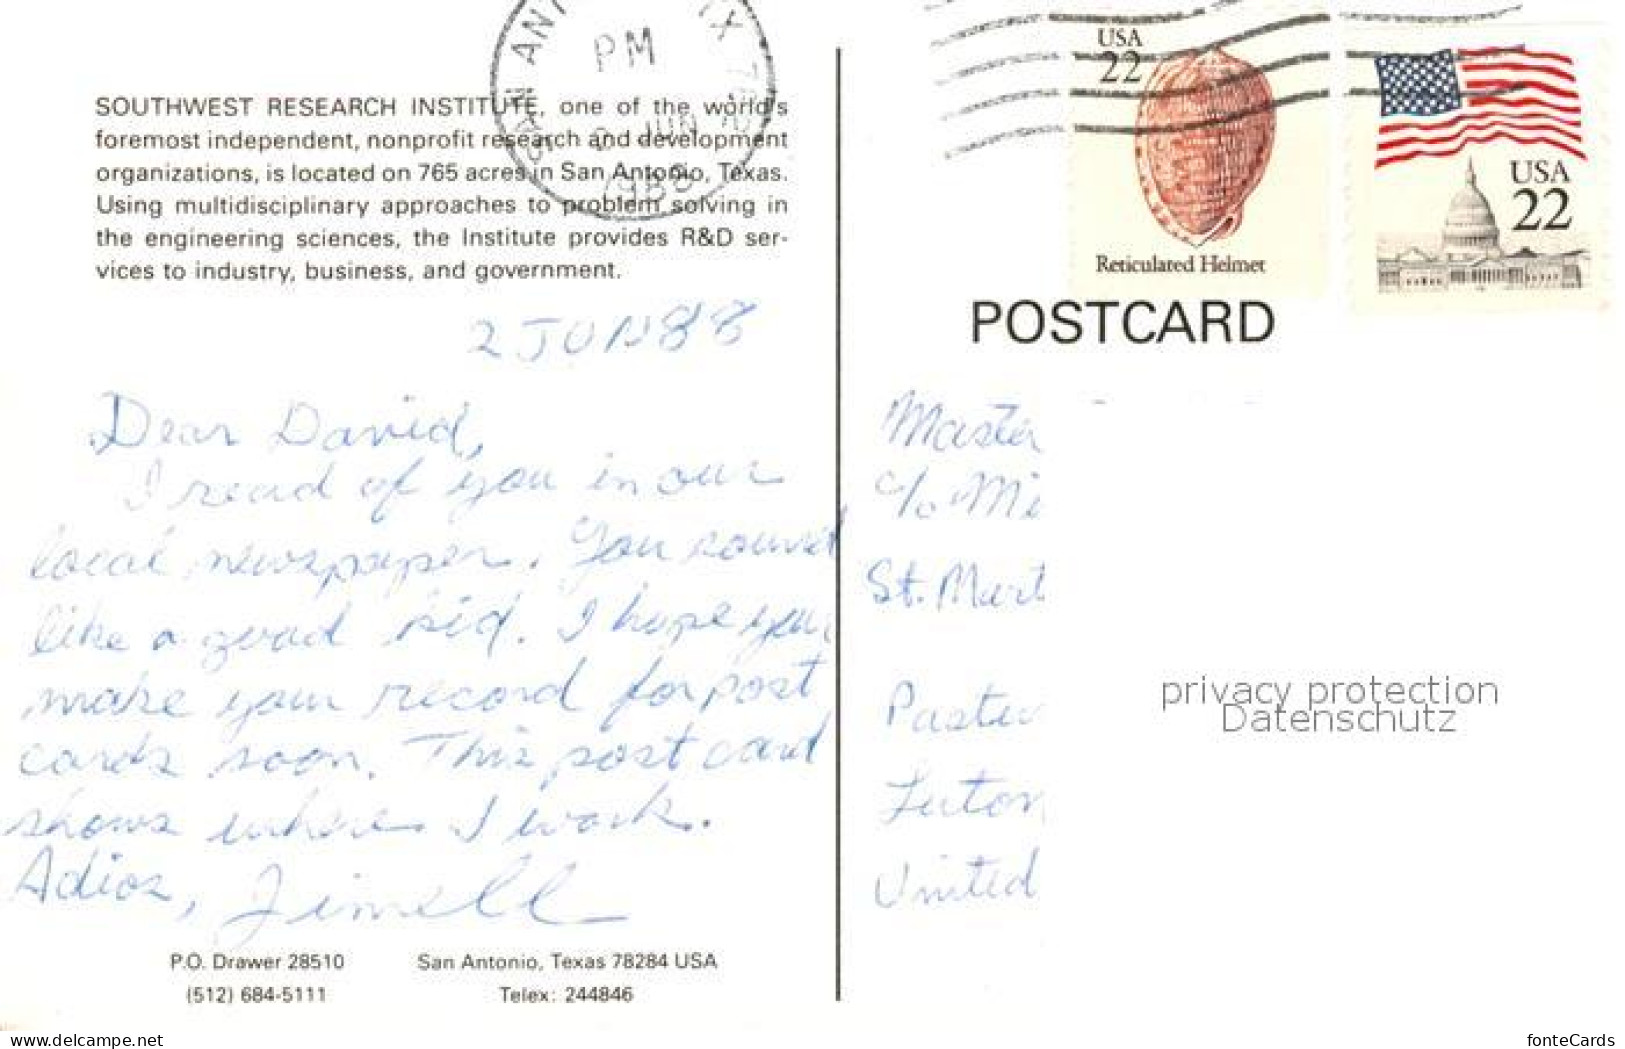 SAN ANTONIO TX
PM
2 JUN
1988
SOUTHWEST RESEARCH INSTITUTE, one of the world's
foremost independent, nonprofit research and development
organizations, is located on 765 acres in San Antonio, Texas.
Using multidisciplinary approaches to problem solving in
the engineering sciences, the Institute provides R&D ser-
vices to industry, business, and government.
2 JUN 88
Dear David,
I read of you in our
local newspaper. You sound
like a good kid. I hope you
make your record for post
cards soon. This post card
shows where I work.
Adios, Jimell
P.O. Drawer 28510
(512) 684-5111
San Antonio, Texas 78284 USA
Telex: 244846
USA
22
Reticulated Helmet
USA
22
POSTCARD
Master
c/o Mi
St. Mart
Paste
Luton
United
privacy protection
Datenschutz
www.delcampe.net
fonteCards